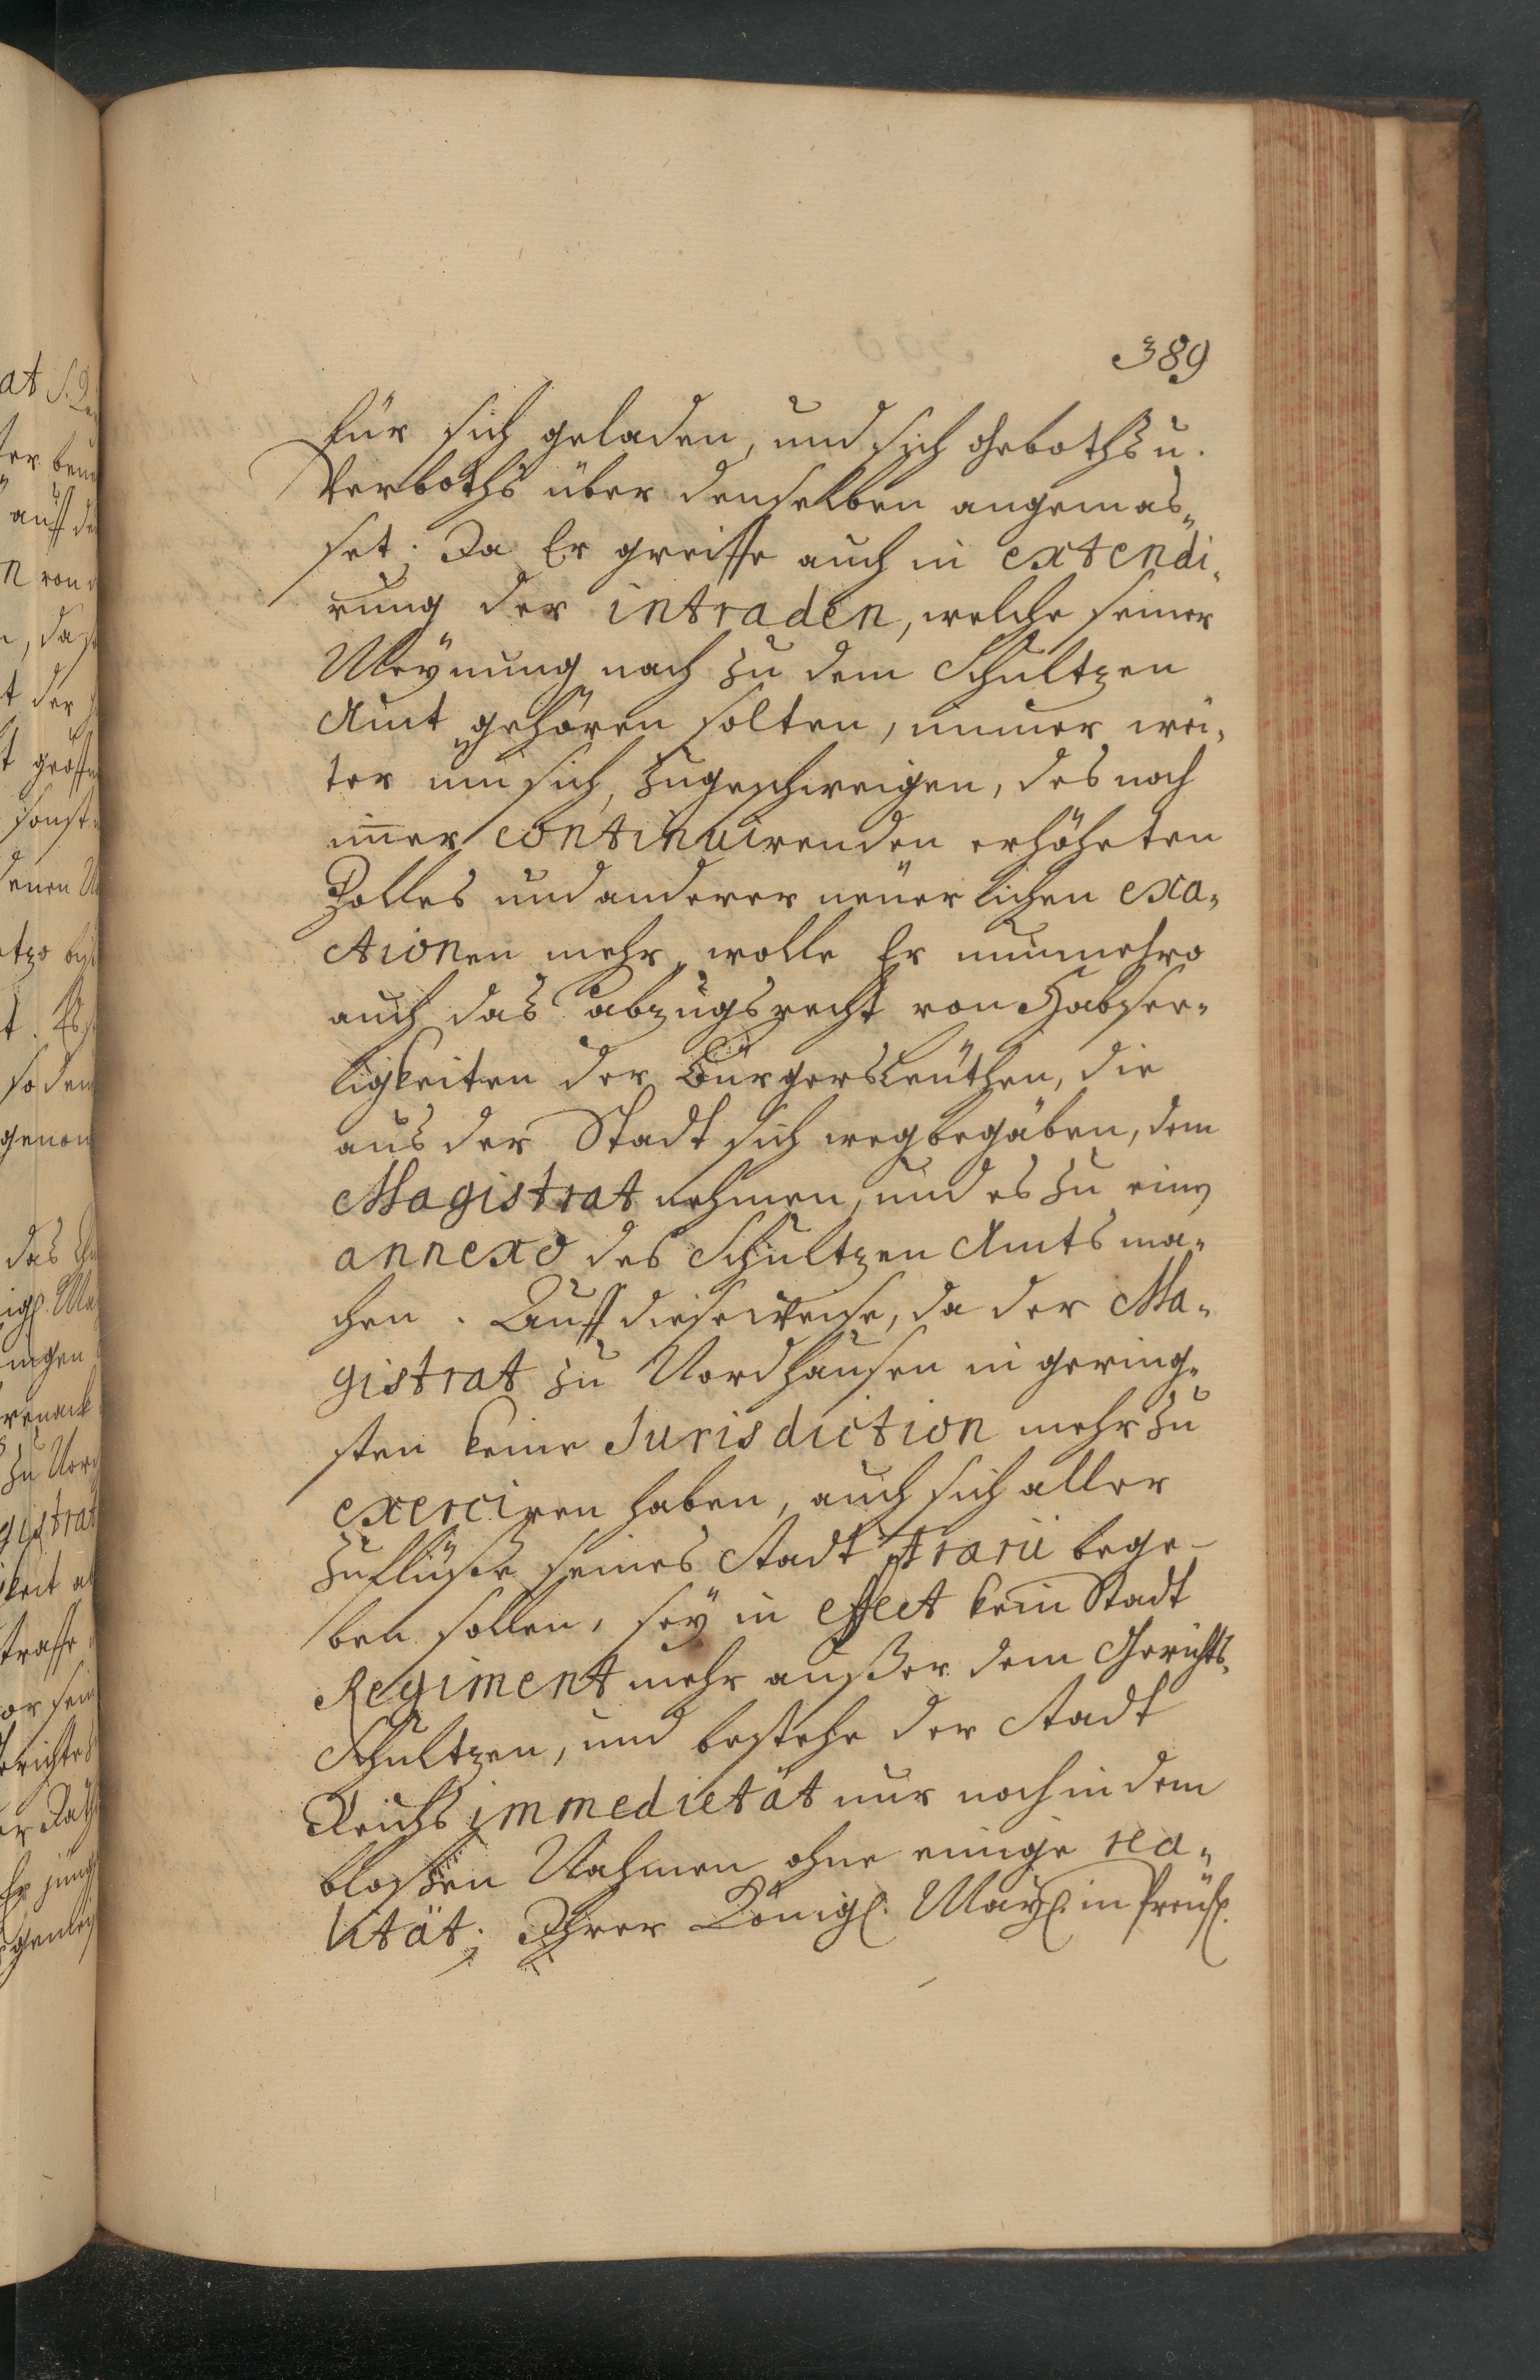 389
für sich geladen, und sich Geboths u.
Verboths über denselben angemas„
set; Da Er greiffe auch in extendi„
rung der intraden, welche seiner
Meÿnung nach zu dem Schultzen
Amt gehören solten, immer wei„
ter um sich, zugeschweigen, des noch
im̄er continuirenden erhöheten
Zolles und anderer neüerlichen exa„
ctionen mehr, wolle Er nunmehro
auch das abzugsrecht von Habsee„
ligkeiten der Bürgersleüthen, die
aus der Stadt sich wegbegäben, dem
Magistrat nehmen, und es zu einem
annexo des Schultzen Amts ma„
chen. Auff diese weise, da der Ma„
gistrat zu Nordhausen in gering„
sten keine Jurisdiction mehr zu
exerciren haben, auch sich aller
Zuflüsse seines Stadt Ærarii bege-
ben sollen, seÿ in effect kein Stadt
Regiment mehr außer dem Gerichts„
Schultzen, und bestehe der Stadt
Reichs immedietät nur noch in dem
bloßen Nahmen ohne einige rea„
lität; Ihrer Königl. Maÿl. in Preüß.